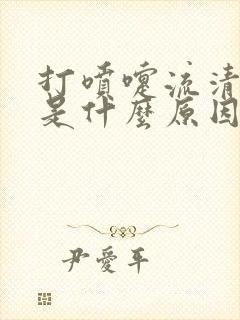 打噴嚏流清
是什麼原因
尹愛平